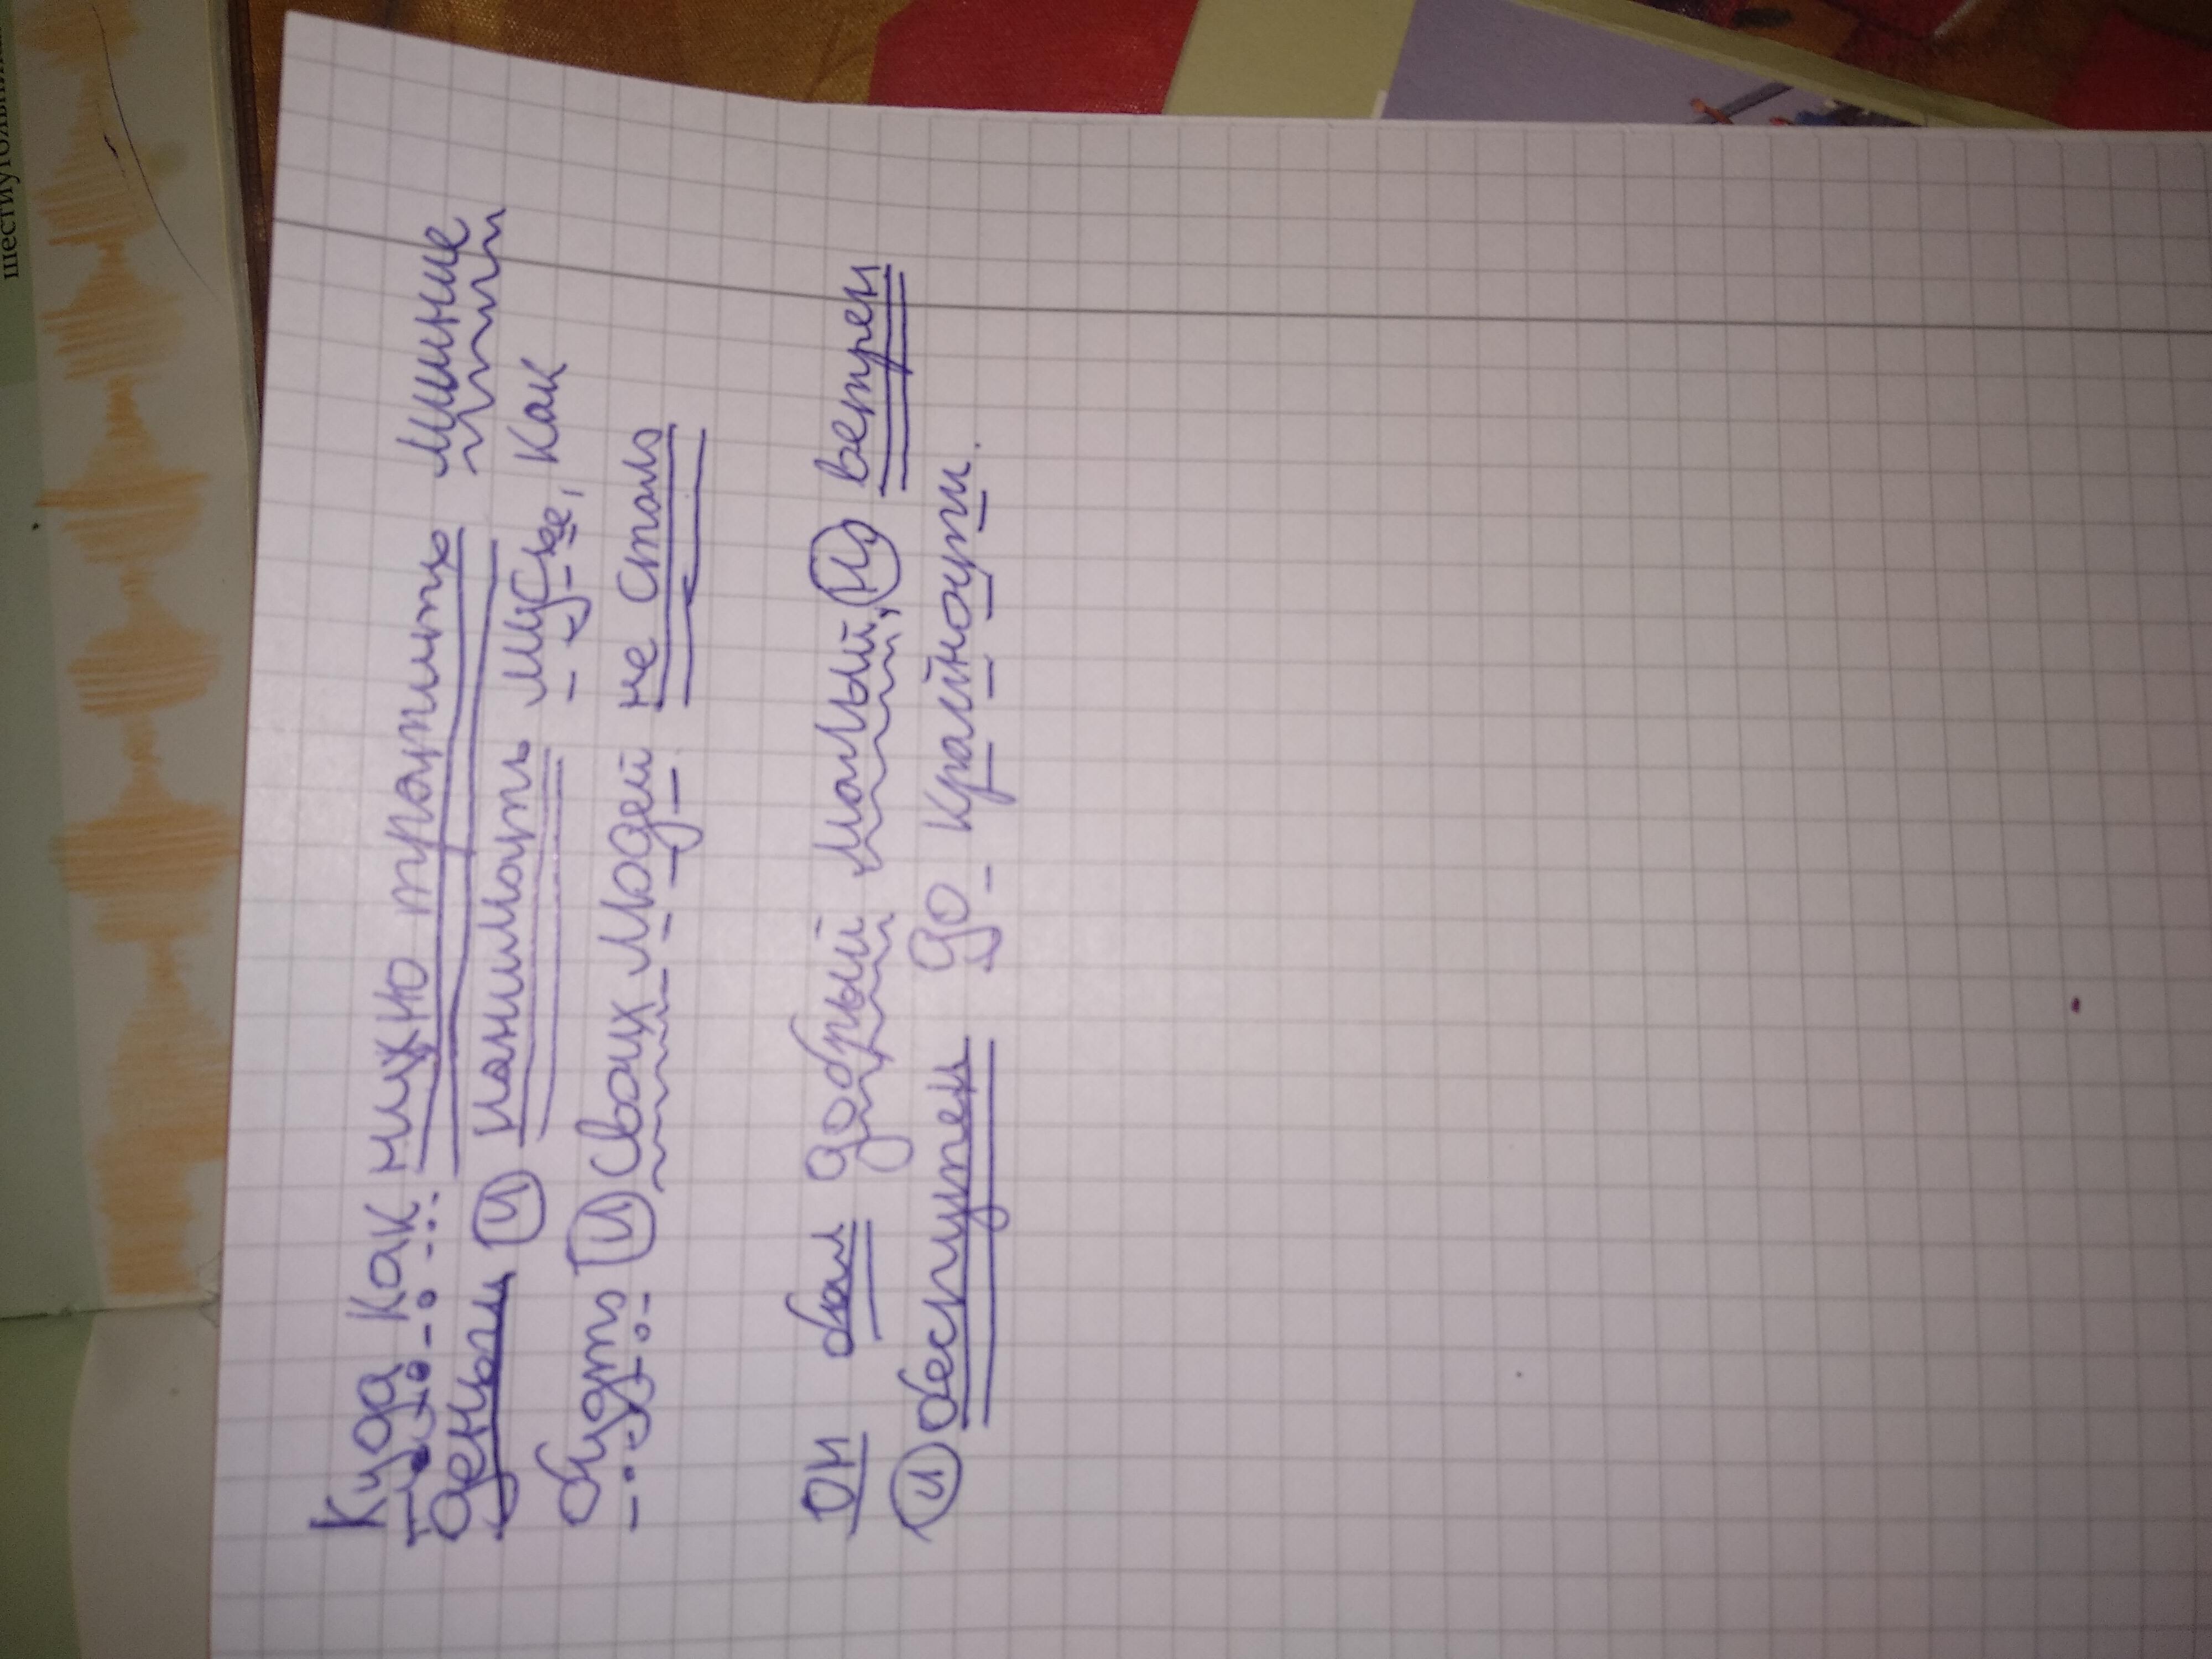 Куда как нужно тратить лишние
деньги и нанимать мусье, как
будто и своих людей не стало
Он был добрый малый, но ветрен
и беспутен до крайности.